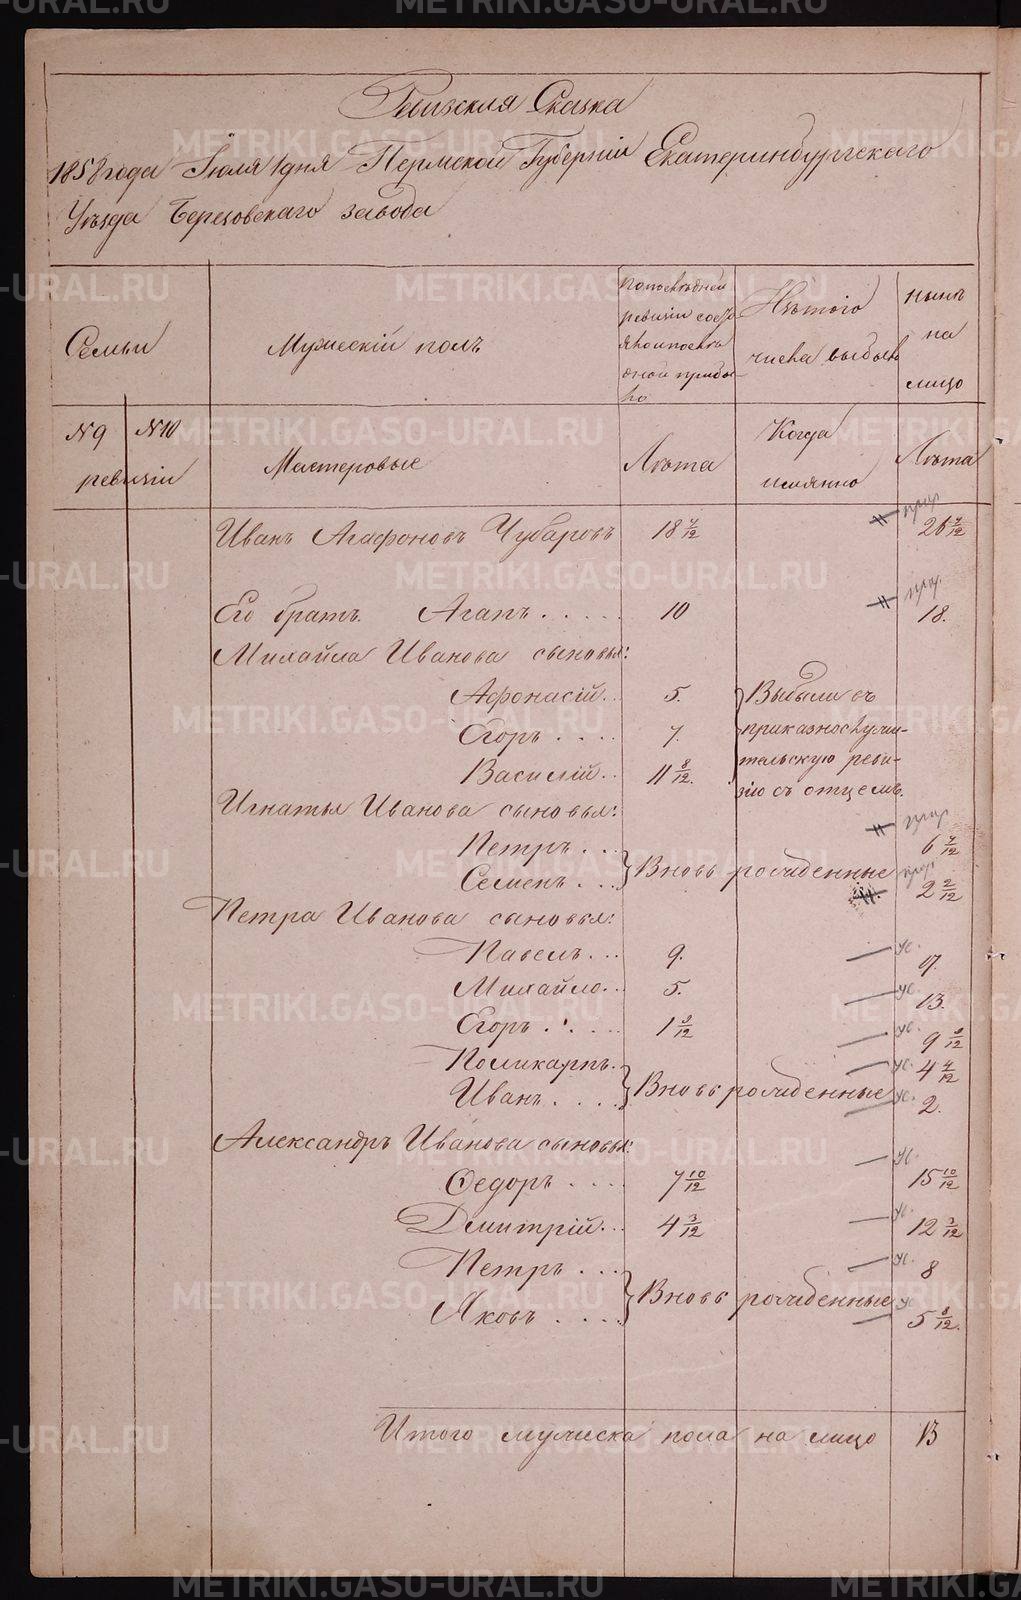 Ревизская Сказка
1858 года Июля 1 дня Пермской Губерніи Екатеринбургскаго
Уѣзда Березовскаго завода
Семьи
Мужескій полъ
По последней ревизіи состояло и после оной прибыло
Изъ того числа выбыло
Нынѣ на лицо
№ 9 № 10
ревизіи
Мастеровые
Лѣта
Когда имянно
Лѣта
Иванъ Агафоновъ Чубаровъ 18 4/12 26 4/12
Его братъ Агапъ . . . . . 10 18.
Михайла Иванова сыновья:
Афонасій . . 5. } Выбыли съ
Егоръ . . . . 7. приказнослужи-
Василій . . 11 8/12. тельскую реви-
зію съ отцемъ.
Игнатья Иванова сыновья:
Петръ . . . } Вновь рожденные 6 4/12
Семенъ . . . 2 2/12
Петра Иванова сыновья:
Павелъ . . . 9. 17.
Михайло . . 5. 13.
Егоръ . . . . 1 8/12 9 8/12
Поликарпъ. } Вновь рожденные 4 4/12
Иванъ . . . . 2.
Александръ Иванова сыновья:
Федоръ . . . . 7 10/12 15 10/12
Дмитрій . . . 4 3/12 12 3/12
Петръ . . . } Вновь рожденные 8
Яковъ . . . . 5 8/12.
Итого мужеска пола на лицо 13
METRIKI.GASO-URAL.RU